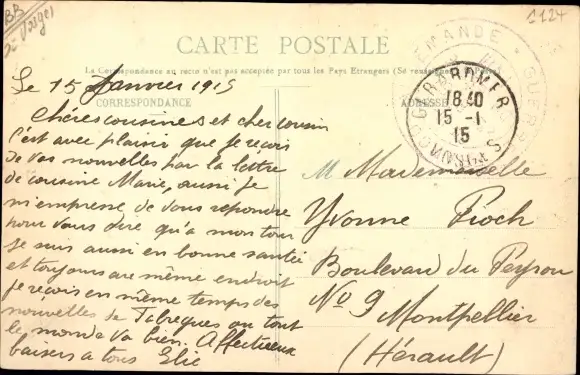 1124
BB
Vosges
CARTE POSTALE
La Correspondance au recto n'est pas acceptée par tous les Pays Etrangers (Se renseigner à la Poste)
CORRESPONDANCE
ADRESSE
GERARDMER
18 40
15 -1
15
VOSGES
Le 15 Janvier 1915
Chères cousines et cher cousin
C'est avec plaisir que je reçois
de vos nouvelles par la lettre
de cousine Marie, aussi je
m'empresse de vous repondre
pour vous dire qu'a mon tour
je suis aussi en bonne santée
et toujours au même endroit
je reçois en même temps des
nouvelles de Fabregues ou tout
le monde va bien. Affectueux
baisers a tous Elie
M Mademoiselle
Yvonne Pioch
Boulevard du Peyrou
No 9 Montpellier
(Hérault)